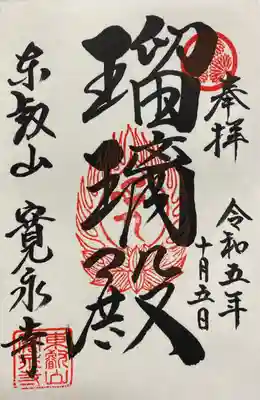 奉拝
令和五年
十月五日
瑠璃殿
東叡山 寛永寺
東叡山
寛永寺